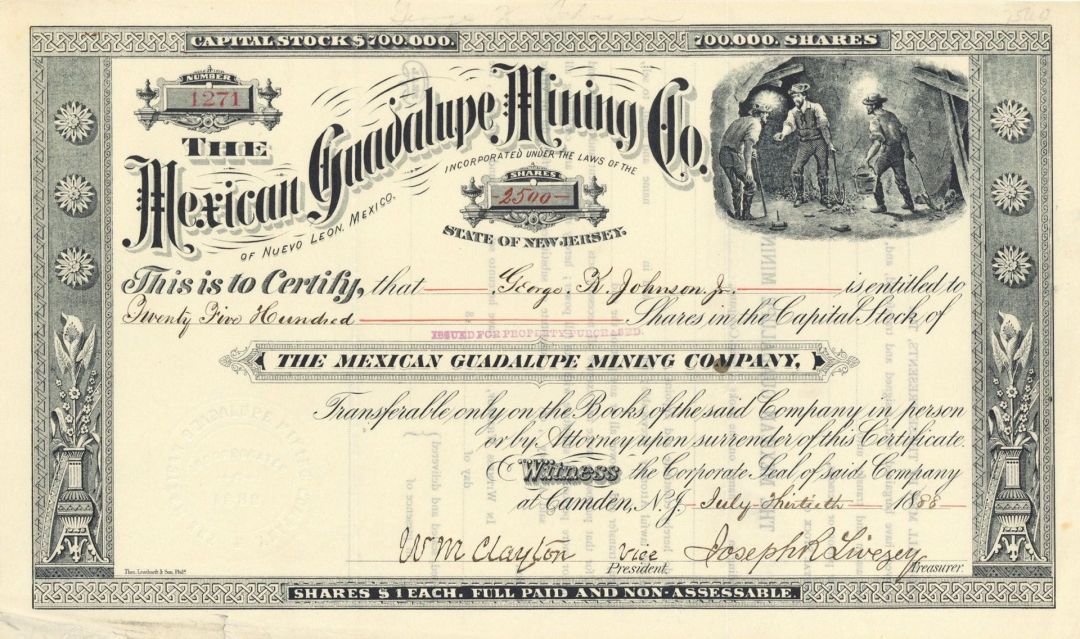 CAPITAL STOCK $700,000.
700,000. SHARES
NUMBER
1271
THE
Mexican Guadalupe Mining Co.
OF NUEVO LEON, MEXICO.
INCORPORATED UNDER THE LAWS OF THE
SHARES
-2500-
STATE OF NEW JERSEY.
This is to Certify, that George K. Johnson Jr. is entitled to
Twenty Five Hundred Shares in the Capital Stock of
ISSUED FOR PROPERTY PURCHASED.
THE MEXICAN GUADALUPE MINING COMPANY,
Transferable only on the Books of the said Company in person
or by Attorney upon surrender of this Certificate.
Witness the Corporate Seal of said Company
at Camden, N.J. July Thirtieth 1888
Wm Clayton Vice President. Joseph R Livezey Treasurer.
Theo. Leonhardt & Son, Phila.
SHARES $1 EACH. FULL PAID AND NON-ASSESSABLE.